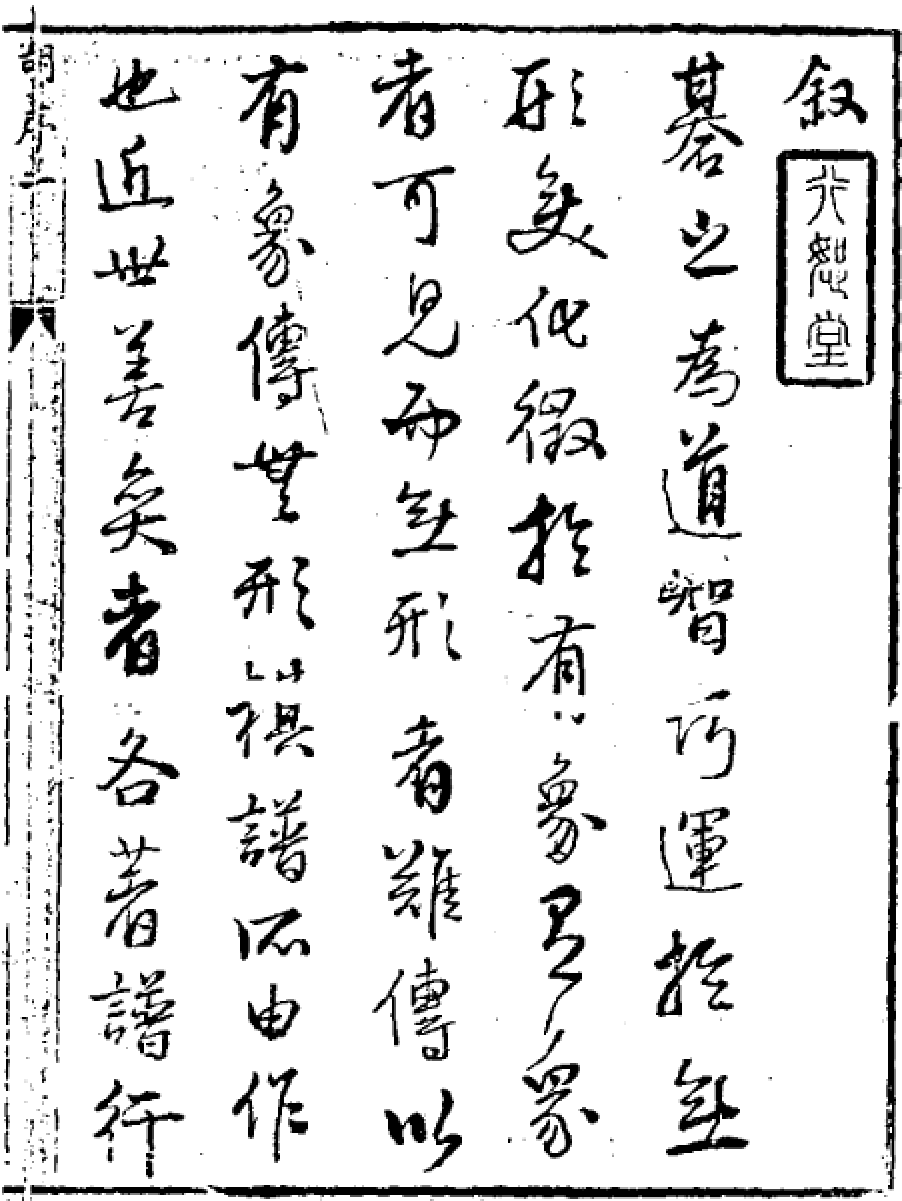 叙
行恕堂
碁之為道智巧運於無
形變化徵於有象有象
者可見而無形者難傳以
有象傳無形此棋譜所由作
也近世善奕者各著譜行
胡序一